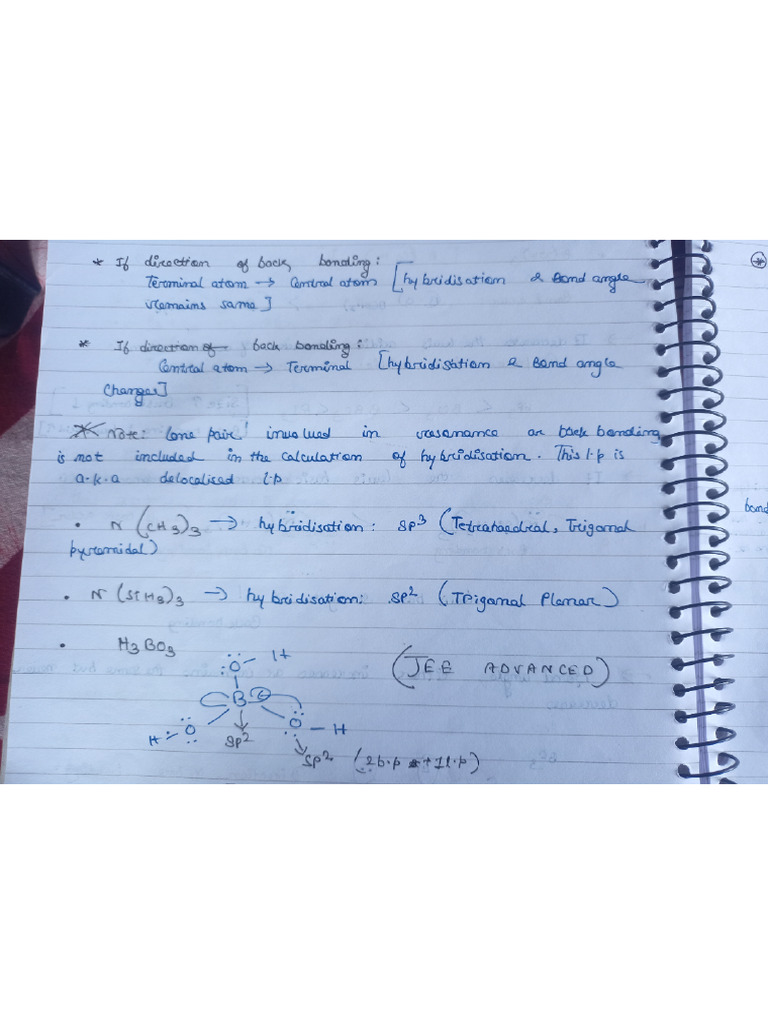 * If direction of back bonding:
Terminal atom → Central atom [hybridisation & Bond angle
remains same]
* If direction of back bonding:
Central atom → Terminal [hybridisation & Bond angle
changes]
* Note: lone pair involved in resonance or back bonding
is not included in the calculation of hybridisation. This l.p is
a.k.a delocalised l.p
• N(CH3)3 → hybridisation: sp3 (Tetrahedral, Trigonal
pyramidal)
• N(SiH3)3 → hybridisation: sp2 (Trigonal Planar)
• H3BO3
(JEE ADVANCED)
O - H
B
H - O
O - H
sp2
sp2 (2b.p + 1l.p)
bond